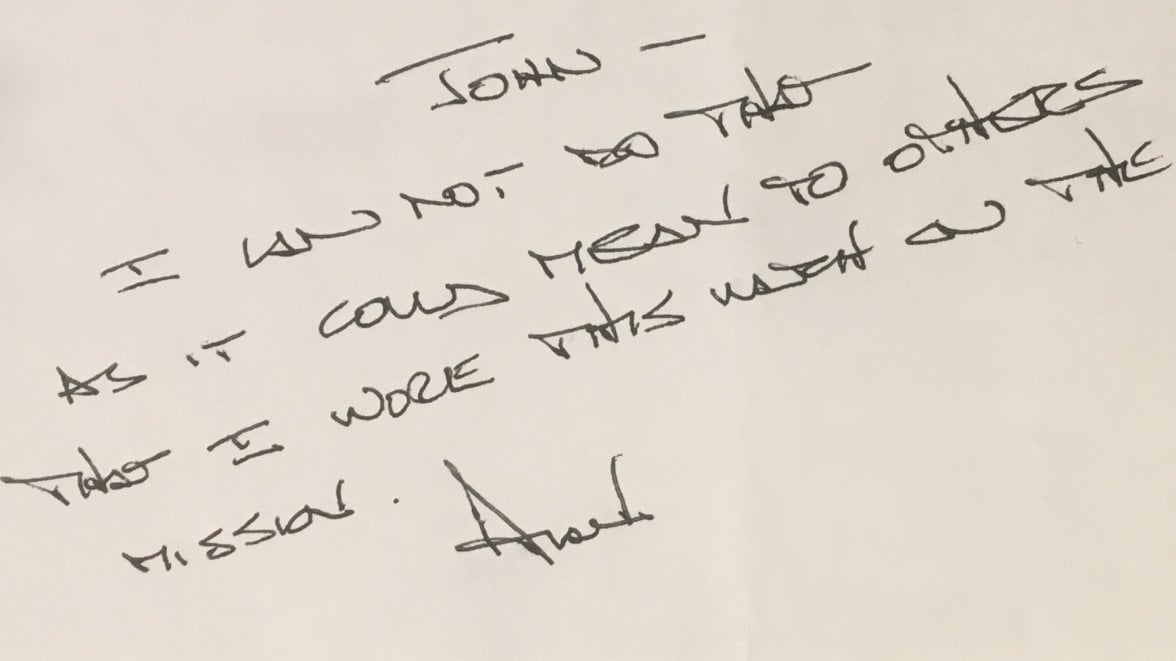 JOHN —
I CAN NOT DO THAT
AS IT COULD MEAN TO OTHERS
THAT I WORE THIS WATCH ON THE
MISSION.